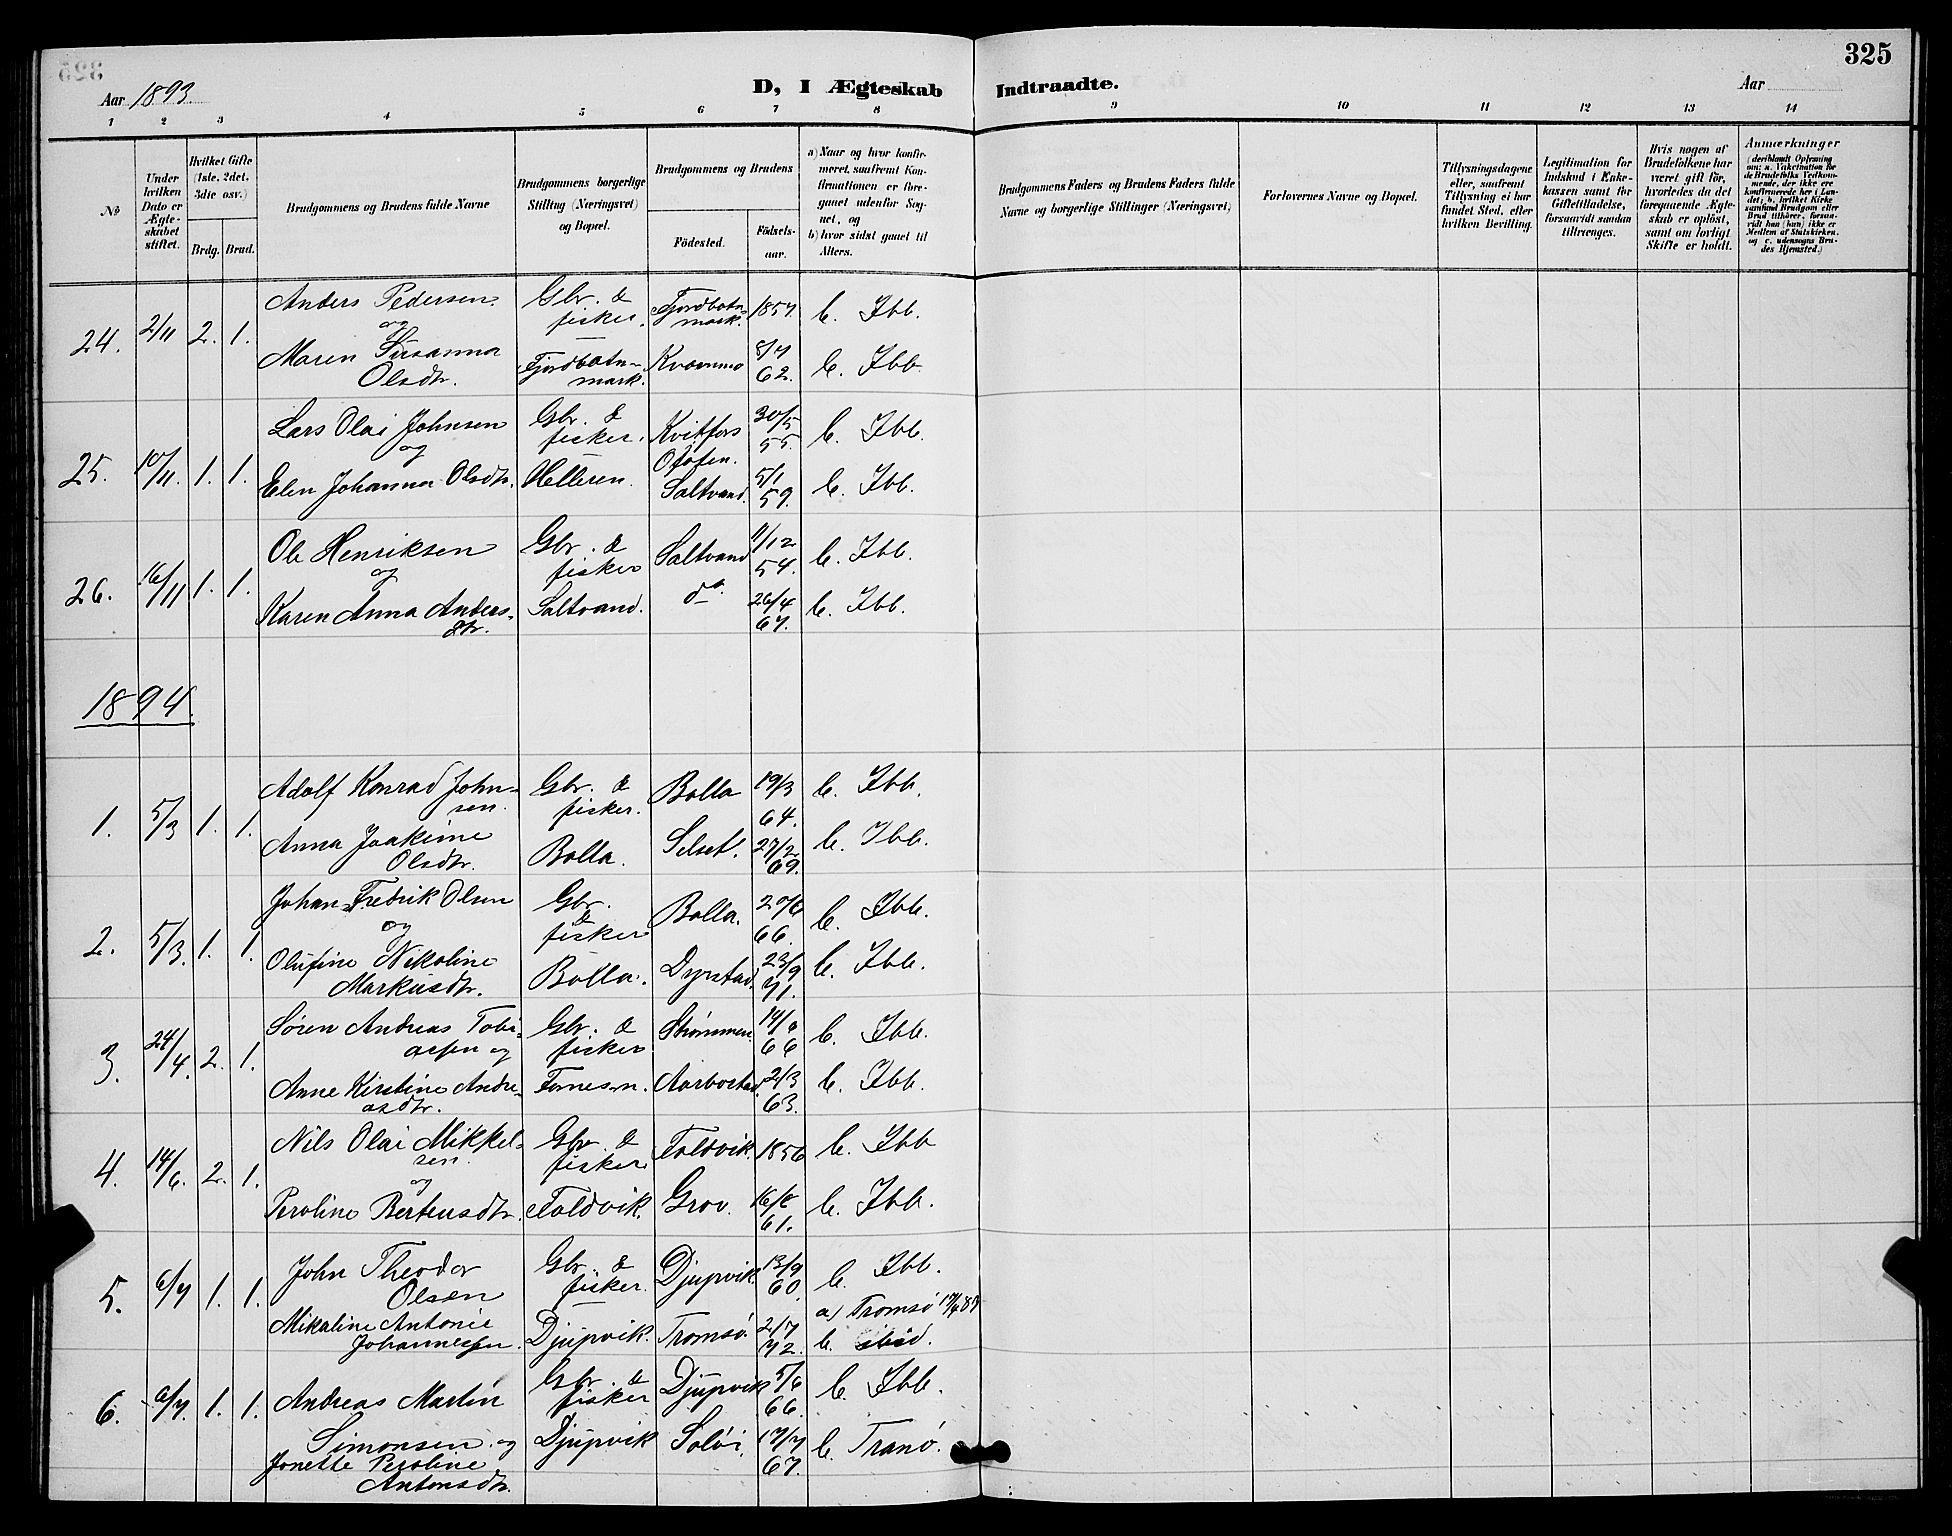 325
Aar 1893.
D, I Ægteskab Indtraadte.
Aar
1 2 3 4 5 6 7 8 9 10 11 12 13 14
No
Under hvilken Dato er Ægteskabet stiftet.
Hvilket Gifte (1ste, 2det, 3die osv.)
Brdg. Brud.
Brudgommens og Brudens fulde Navne
Brudgommens borgerlige Stilling (Næringsvei) og Bopæl.
Brudgommens og Brudens
Födested.
Födselsaar.
a) Naar og hvor konfirmeret, saafremt Konfirmationen er foregaaet udenfor Sognet, og
b) hvor sidst gaaet til Alters.
Brudgommens Faders og Brudens Faders fulde Navne og borgerlige Stillinger (Næringsvei)
Forlovernes Navne og Bopæl.
Tillysningsdagene eller, saafremt Tillysning ei har fundet Sted, efter hvilken Bevilling.
Legitimation for Indskud i Enkekassen samt for Giftetilladelse, forsaavidt saadan tiltrænges.
Hvis nogen af Brudefolkene har været gift før, hvorledes da det foregaaende Ægteskab er opløst, samt om lovligt Skifte er holdt.
Anmærkninger
(deriblandt Oplysning om: a. Vakcination for de Brudefolks Vedkommende, der ikke ere konfirmerede her i Landet; b. hvilket Kirkesamfund Brudgom eller Brud tilhører, forsaavidt han (hun) ikke er Medlem af Statskirken, og c. udensogns Brudes Hjemsted.)
24. 2/11 2. 1.
Anders Pedersen Gbr. & Fjordbotn- 1857. b. Ibb.
og fisker. mark.
Maren Susanna Fjordbotn- Kvernmo 8/7 b. Ibb.
Olsdtr. mark. 62.
25. 10/11. 1. 1.
Lars Olai Johnsen Gbr. & Kvitfors 30/5 b. Ibb.
og fisker. Ofoten. 55.
Elen Johanna Olsdtr. Helleren. Saltvand. 5/1 59. b. Ibb.
26. 16/11 1. 1.
Ole Henriksen Gbr. & Saltvand 11/12 b. Ibb.
og fisker 54.
Karen Anna Anders- Saltvand. do. 26/4 b. Ibb.
dtr. 67.
1894.
1. 5/3 1. 1.
Adolf Konrad John- Gbr. & Bolla 19/3 b. Ibb.
sen. fisker. 64.
Anna Joakime Bolla. Selset. 27/2 b. Ibb.
Olsdtr. 69.
2. 5/3. 1. 1.
Johan Fredrik Olsen Gbr. Bolla. 20/6 b. Ibb.
og & fisker 66.
Olufine Nikoline Bolla. Dyrstad. 23/9 b. Ibb.
Markusdtr. 71.
3. 24/4. 2. 1.
Søren Andreas Tobi- Gbr. & Strømmen 14/6 b. Ibb.
assen og fisker 66
Anne Kirstine Andre- Fornesm. Aarbostad. 2/3 b. Ibb.
asdtr. 63.
4. 14/6. 2. 1.
Nils Olai Mikkel- Gbr. & Foldvik. 1856 b. Ibb
sen. fisker
og
Peroline Berteusdtr. Foldvik. Grov. 61. b. Ibb.
5. 6/7 1. 1.
John Theodor Gbr. & Djupvik 13/9 b. Ibb.
Olsen fisker. 60.
Mikaline Antonie Djupvik. Tromsø. 2/7 a) Tromsø
Johannessen. 72. b. ibid.
6. 6/7. 1. 1.
Andreas Martin Gbr. & Djupvik 5/6 b. Ibb.
fisker 66.
Simonsen og Djupvik Soløi. 17/7 b. Tranø.
Jonette Peroline 67.
Antonsdtr.